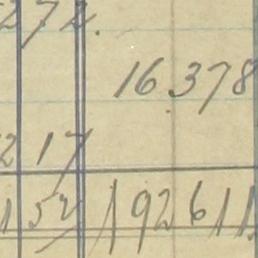 272.
16.378
217
152 192611